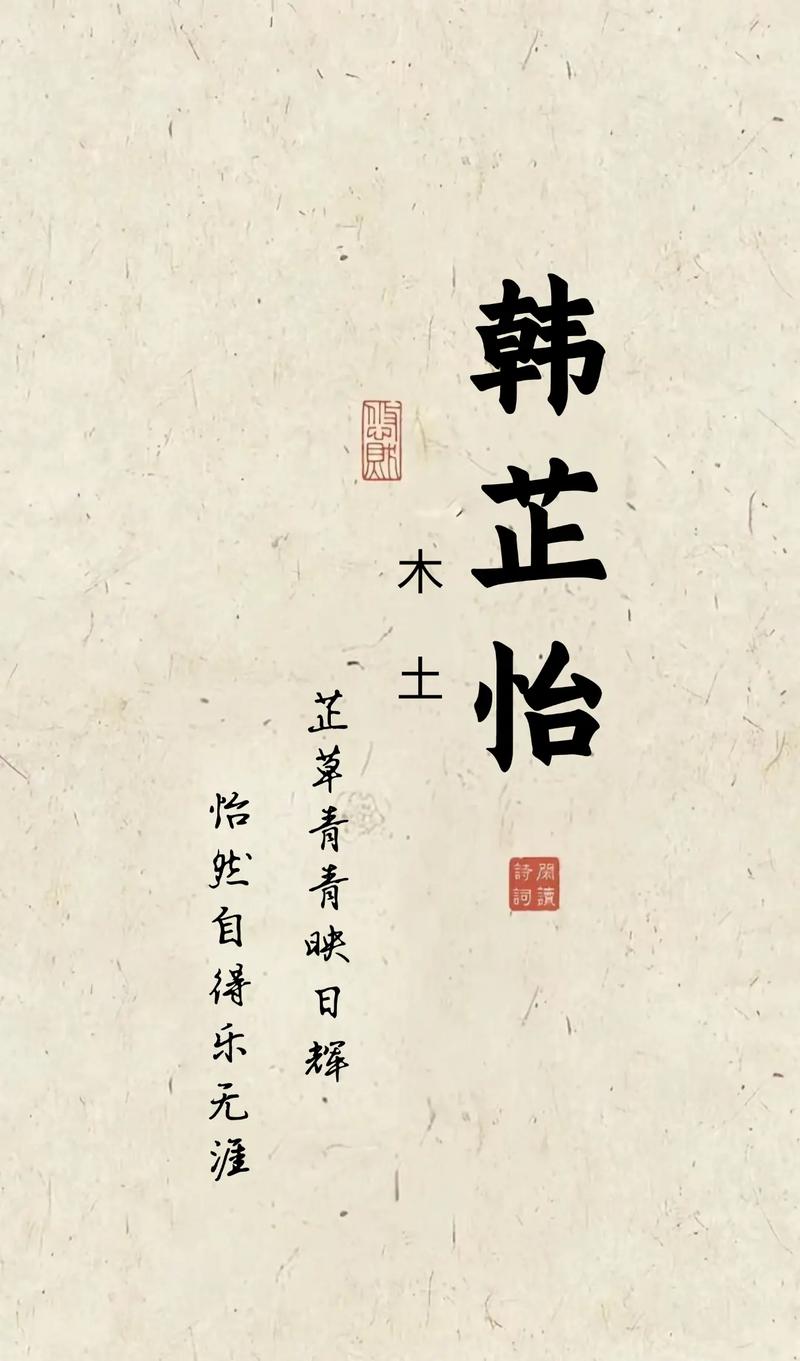 韩芷怡
木
土
芷草青青映日辉
怡然自得乐无涯
閑讀
詩詞